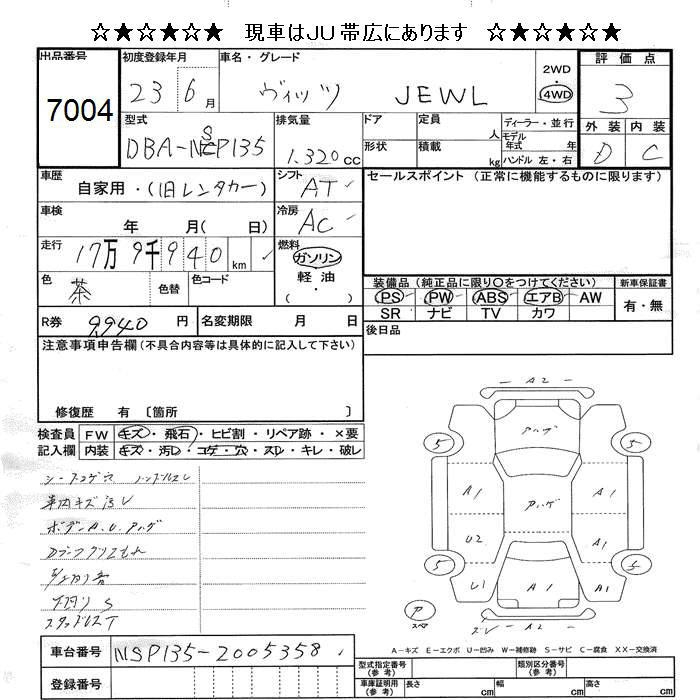 ☆★☆★☆★ 現車はJU帯広にあります ☆★☆★☆★
出品番号 7004
初度登録年月 23 6月
車名・グレード ヴィッツ JEWL
2WD
4WD
評価点 3
外装 内装
D C
型式 DBA-NSP135
排気量 1.320cc
ドア
定員 人
ディーラー・並行
モデル年式 年
形状
積載 kg
ハンドル 左・右
車歴 自家用・(旧レンタカー)
シフト AT
セールスポイント (正常に機能するものに限ります)
車検 年 月( 日)
冷房 AC
走行 17万9千940km
燃料 ガソリン
軽・油
( ・ )
色 茶
色替
色コード
装備品 (純正品に限り○をつけてください) 新車保証書
PS PW ABS エアB AW 有・無
SR ナビ TV カワ
R券 9,940円
名変期限 月 日
後日品
注意事項申告欄(不具合内容等は具体的に記入して下さい)
修復歴 有 〔箇所 〕
検査員 FW キズ・飛石・ヒビ割・リペア跡・×要
記入欄 内装 キズ・汚レ・コゲ・穴・スレ・キレ・破レ
シートコゲ穴 ハンドルスレ
車内キズ汚レ
ボデーA.U.アハゲ
下廻りS
スタッドレスT
A2
アハゲ
5 5
A1 アハゲ A1
U2 A1
5 5
U1 A1 A1
P
スペア
スレ A2
A-キズ E-エクボ U-凹み W-補修跡 S-サビ C-腐食 XX-交換済
車台番号 NSP135-2005358
登録番号
型式指定番号(参考)
類別区分番号(参考)
車庫証明用(参考) 長さ cm 幅 cm 高さ cm